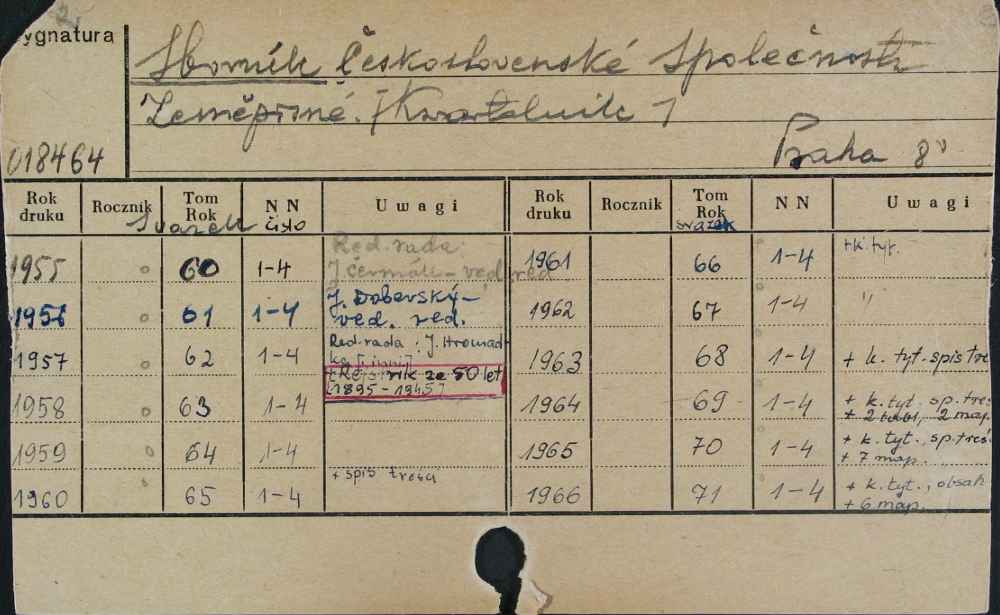 ygnatura
Sborník Československé Společnosti
Zeměpisné. [Kwartalnik]
018464
Praha 8°
Rok druku Rocznik Tom Rok NN Uwagi Rok druku Rocznik Tom Rok NN Uwagi
Svazek číslo svazek
1955 60 1-4 Red. rada: J. Čermák - ved. red. 1961 66 1-4 + k. tyt.
1956 61 1-4 J. Doberský - ved. red. 1962 67 1-4 "
1957 62 1-4 Red. rada: J. Hromádka [i inni] 1963 68 1-4 + k. tyt. spis tre
+ Rejstřík ze 50 let [1895-1945]
1958 63 1-4 1964 69 1-4 + k. tyt. sp. treś + 2 tabl., 2 map.
1959 64 1-4 1965 70 1-4 + k. tyt., sp. treś + 7 map.
1960 65 1-4 + spis treści 1966 71 1-4 + k. tyt., obsah + 6 map.